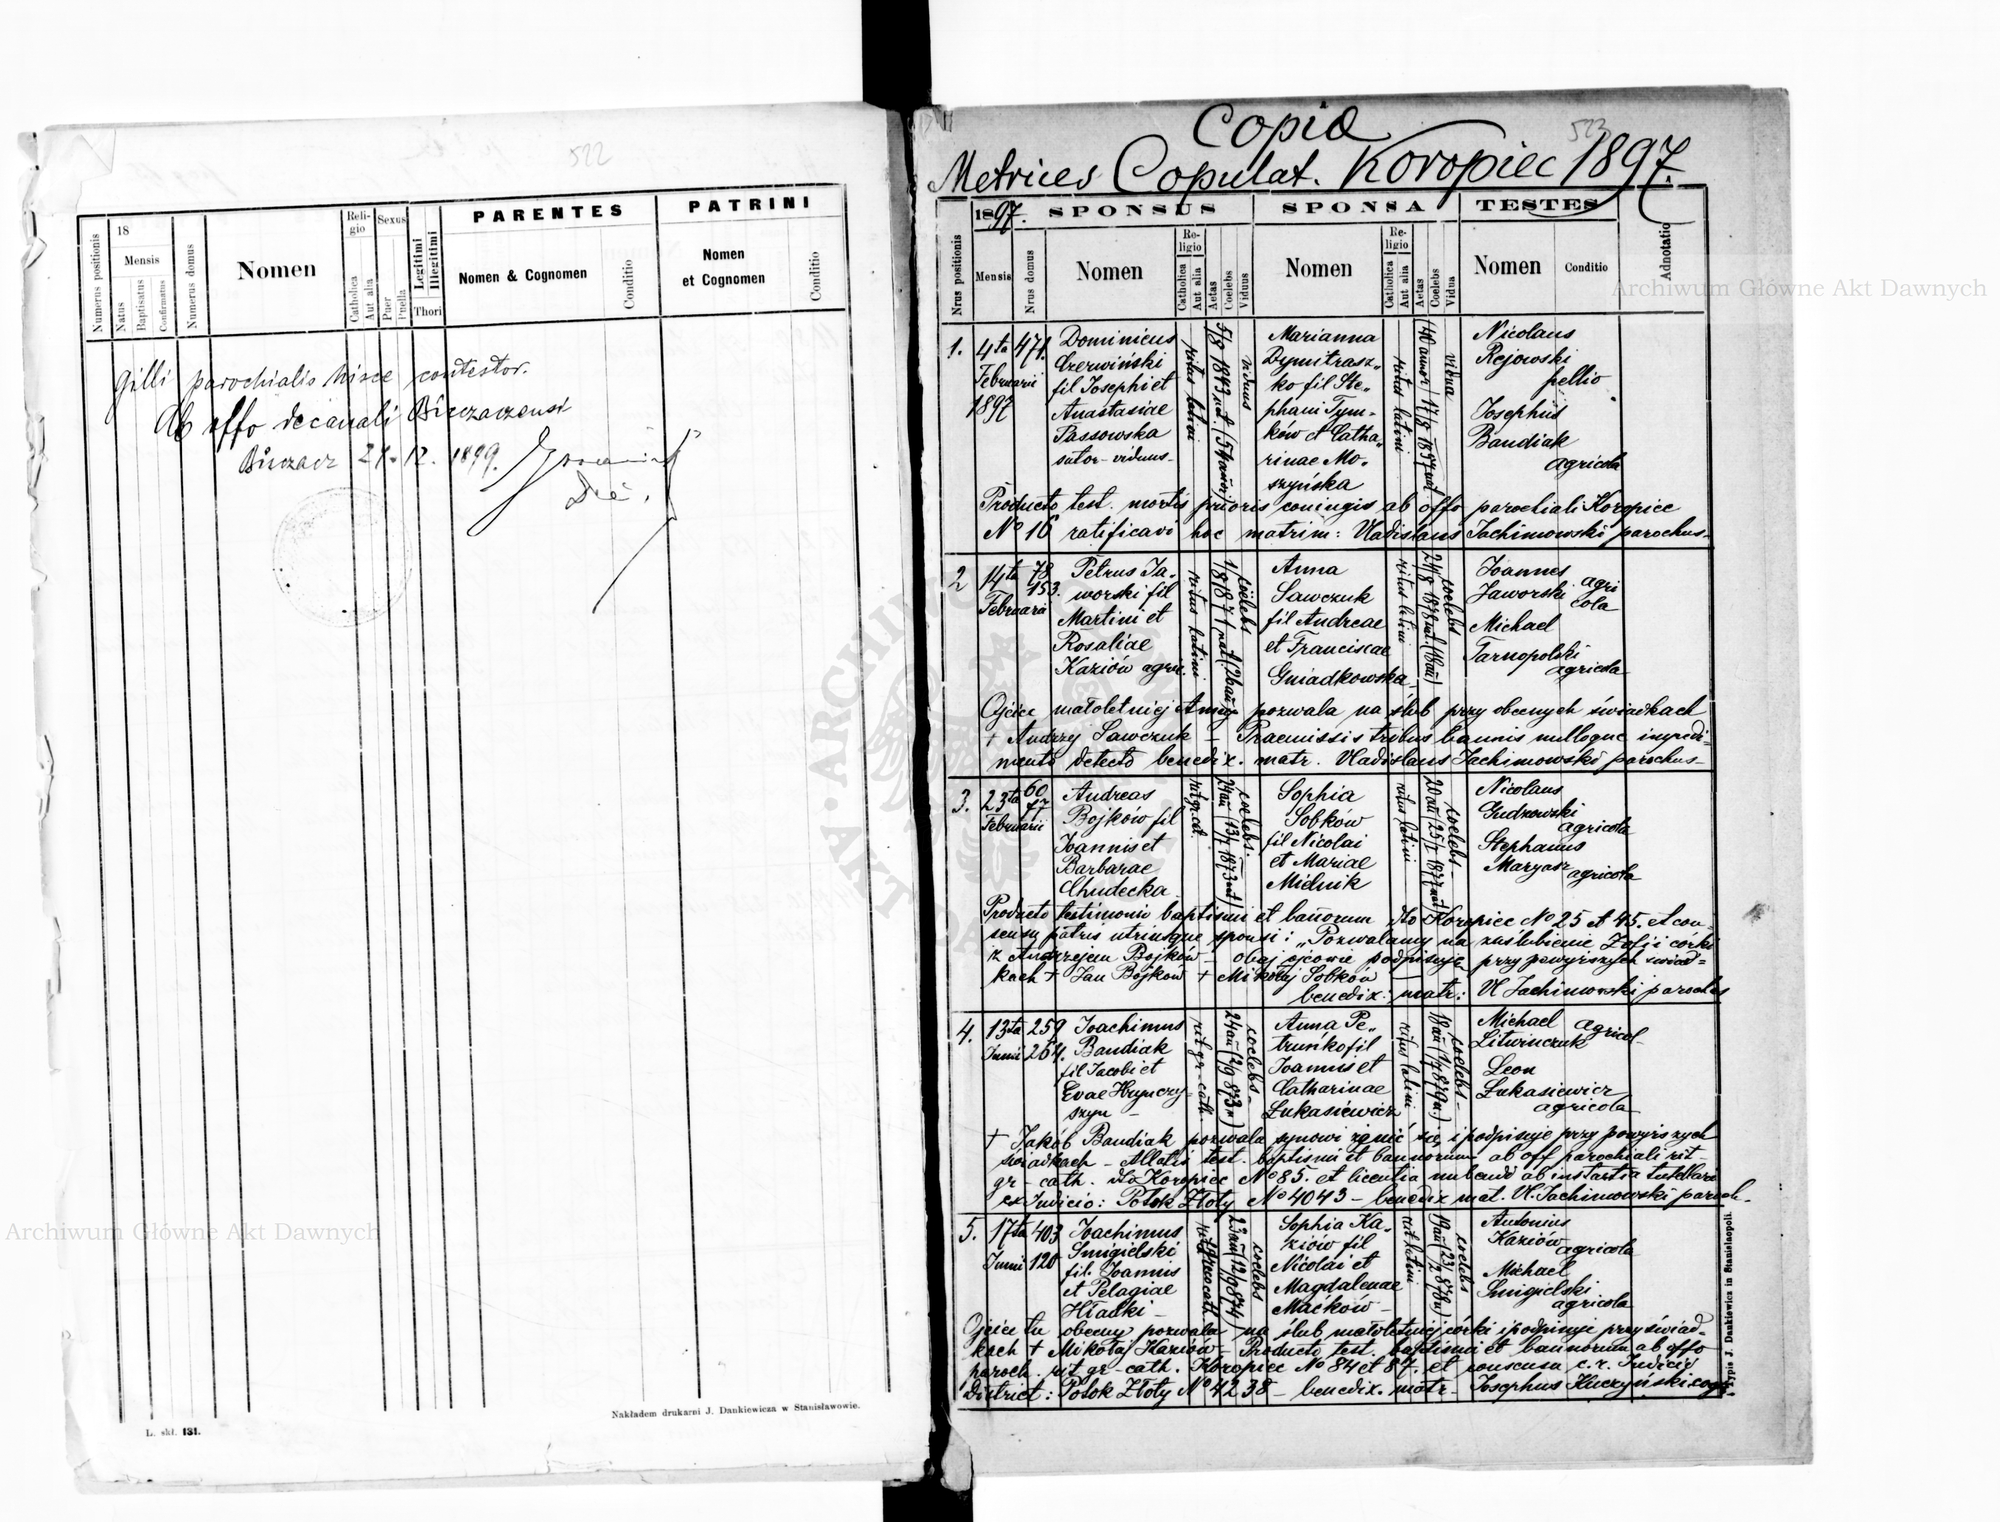 522
PARENTES
PATRINI
Numerus positionis
18
Mensis
Natus
Baptisatus
Confirmatus
Numerus domus
Nomen
Religio
Catholica
Aut alia
Sexus
Puer
Puella
Legitimi
Illegitimi
Thori
Nomen & Cognomen
Conditio
Nomen
et Cognomen
Conditio
parochialis hisce contestor.
Ab offo decanali Buczaczensi
Buczacz 21. 12. 1899.
Nakładem drukarni J. Dankiewicza w Stanisławowie.
L. skł. 131.
523
Copia
Metrices Copulat. Koropiec 1897.
1897. SPONSUS SPONSA TESTES
Nrus positionis
Mensis
Nrus domus
Nomen
Religio
Catholica
Aut alia
Aetas
Coelebs
Viduus
Nomen
Religio
Catholica
Aut alia
Aetas
Coelebs
Vidua
Nomen
Conditio
Adnotatio
1. 4ta
Februarii
1897
471.
Dominicus
Czerwiński
fil Josephi et
Anastasiae
Passowska
sutor - viduus -
ritus latini
viduus
Marianna
Dymitrasz„
ko fil Ste„
phani Tym„
ków et Catha„
rinae Mo„
szyńska
ritus latini
vidua
Nicolaus
Rejowski
pellio
Josephus
Baudiak
agricola
Producto test. mortis prioris coniugis ab offo parochiali Koropiec
No 16 ratificavi hoc matrim: Vladislaus Jachimowski parochus -
2 14ta
Februarii
78
153.
Petrus Ja„
worski fil
Martini et
Rosaliae
Kaziów agric.
ritus latini
coelebs
Anna
Sawczuk
fil Andreae
et Franciscae
Gniadkowska
ritus latini
coelebs
Joannes
Jaworski agri
cola
Michael
Tarnopolski
agricola
Ojciec małoletniej Anny pozwala na ślub przy obecnych świadkach
+ Andrzej Sawczuk - Praemissis tribus bannis nulloque impedi„
mento detecto benedix. matr. Vladislaus Jachimowski parochus -
3. 23ta
Februarii
60
77
Andreas
Bojków fil
Joannis et
Barbarae
Chudecka
rit gr. cat.
coelebs.
Sophia
Sobków
fil Nicolai
et Mariae
Mielnik
ritus latini
coelebs -
Nicolaus
Gudzowski
agricola
Stephanus
Maryasz
agricola
Producto testimonio baptismi et bannorum dto Koropiec No 25 et 45. et con„
sensu patris utriusque sponsi: „Pozwalamy na zaślubienie Zofii córki
z Andrzejem Bojków - obaj ojcowie podpisuje przy powyższych świad„
kach + Jan Bojków + Mikołaj Sobków
benedix: matr: Vl Jachimowski parochus
4. 13ta
Junii
259
264.
Joachimus
Baudiak
fil Jacobi et
Evae Hrynczy„
szyn -
rit gr-cath
coelebs -
Anna Pe„
truńko fil
Joannis et
Catharinae
Łukasiewicz
ritus latini
coelebs -
Michael agricol
Litwinczuk
Leon
Łukasiewicz
agricola
+ Jakób Baudiak pozwala synowi żenić się i podpisuje przy powyższych
świadkach - Allatis test. baptismi et bannorum ab off parochiali rit -
gr - cath. dto Koropiec No 85. et licentia nubendi ab instantia tutellari
ex Judicio: Potok Złoty No 4043 - benedix mat. Vl. Jachimowski paroch.
5. 17ta
Junii
403
120
Joachimus
Smigielski
fil. Joannis
et Pelagiae
Hładki -
coelebs
Sophia Ka„
ziów fil
Nicolai et
Magdalenae
Maćków -
rit latini
coelebs
Antonius
Kaziów
agricola
Michael
Smigielski
agricola
Ojciec tu obecny pozwala na ślub małoletniej córki i podpisuje przy świad„
kach + Mikołaj Kaziów - Producto test. baptismi et bannorum ab offo
paroch. rit gr - cath. Koropiec No 84 et 87. et consensu c. r. Judicio
district: Potok Złoty No 4238 - benedix. matr - Josephus Kuczyński coop.
Typis J. Dankiewicz in Stanislaopoli.
Archiwum Główne Akt Dawnych
Archiwum Główne Akt Dawnych